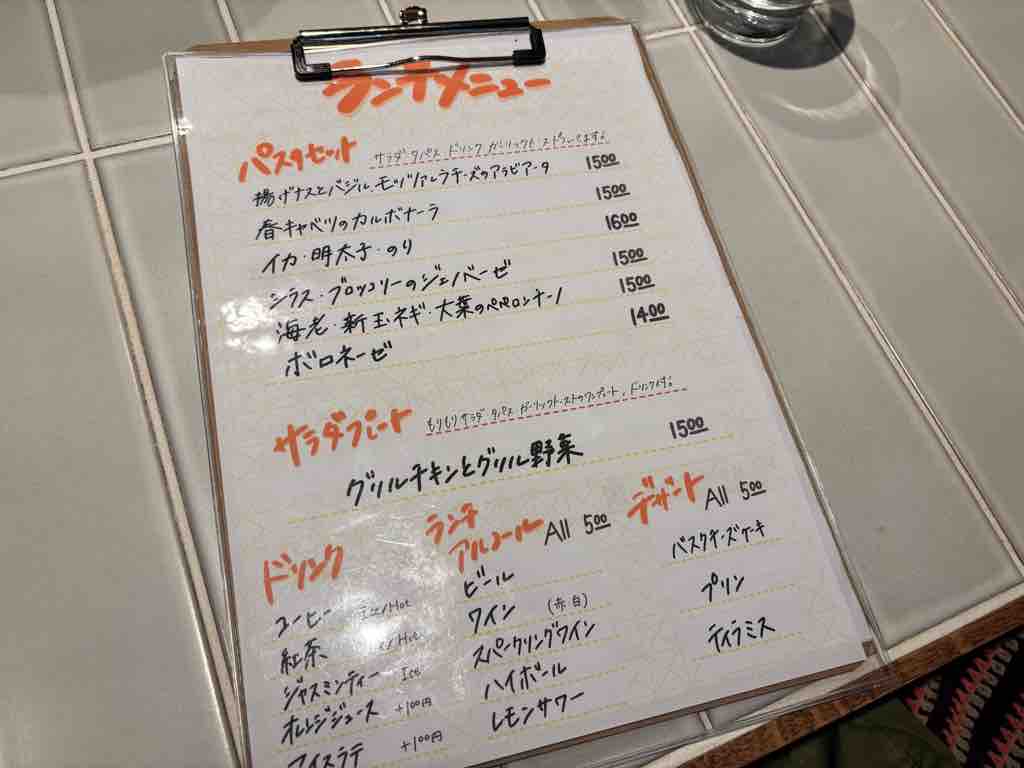 ランチメニュー
パスタセット サラダ タパス ドリンク ガーリックトースト ついてます!
揚げナスとバジル、モッツァレラチーズのアラビアータ 1500
春キャベツのカルボナーラ 1500
イカ・明太子・のり 1600
シラス・ブロッコリーのジェノベーゼ 1500
海老・新玉ネギ・大葉のペペロンチーノ 1500
ボロネーゼ 1400
サラダプレート もりもりサラダ タパス ガーリックトーストのワンプレート、ドリンク付。
グリルチキンとグリル野菜 1500
ドリンク
コーヒー Ice/Hot
紅茶 Ice/Hot
ジャスミンティー Ice
オレンジジュース +100円
アイスラテ +100円
ランチ
アルコール All 500
ビール
ワイン (赤 白)
スパークリングワイン
ハイボール
レモンサワー
デザート All 500
バスクチーズケーキ
プリン
ティラミス